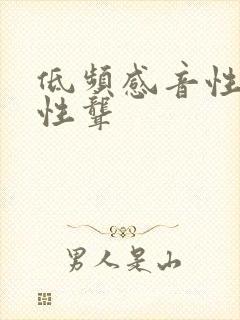 低頻感音性
性聾
男人是山